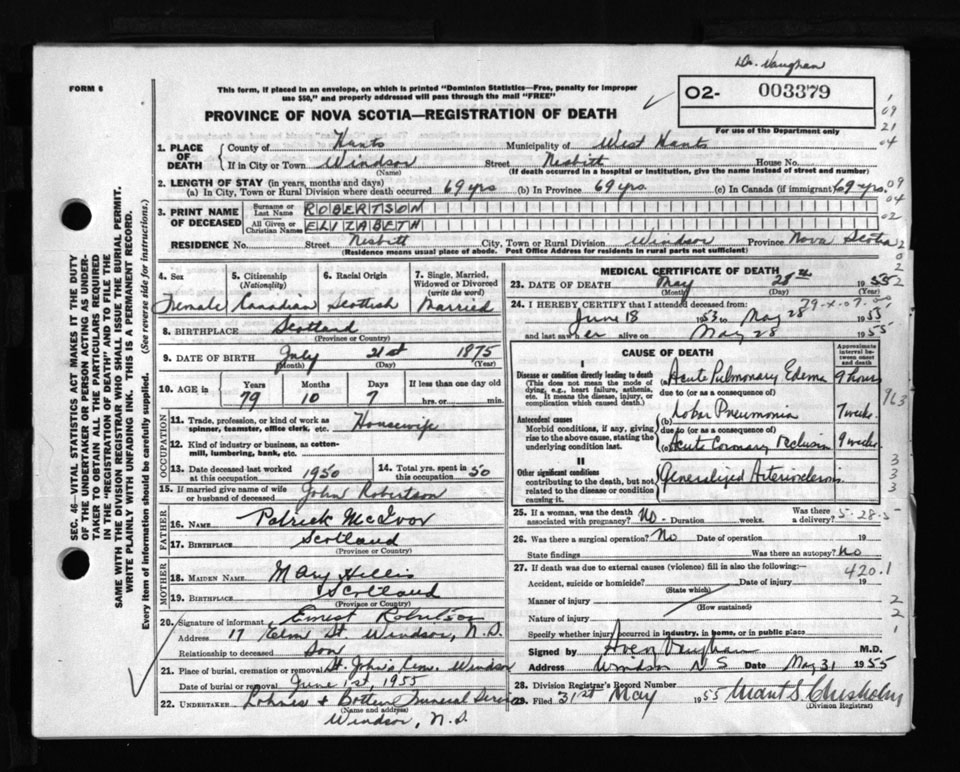 Dr. Vaughan
FORM 6
This form, if placed in an envelope, on which is printed "Dominion Statistics—Free, penalty for improper use $50," and properly addressed will pass through the mail "FREE"
02- 003379
PROVINCE OF NOVA SCOTIA—REGISTRATION OF DEATH
For use of the Department only
1. PLACE OF DEATH
County of Hants Municipality of West Hants
If in City or Town Windsor Street Nesbitt House No.
(Name) (If death occurred in a hospital or institution, give the name instead of street and number)
2. LENGTH OF STAY (in years, months and days)
(a) In City, Town or Rural Division where death occurred 69 yrs (b) In Province 69 yrs (c) In Canada (if immigrant) 69 yrs.
3. PRINT NAME OF DECEASED
Surname or Last Name ROBERTSON
All Given or Christian Names ELIZABETH
RESIDENCE No. Street Nesbitt City, Town or Rural Division Windsor Province Nova Scotia
(Residence means usual place of abode. Post Office Address for residents in rural parts not sufficient)
4. Sex Female
5. Citizenship (Nationality) Canadian
6. Racial Origin Scottish
7. Single, Married, Widowed or Divorced (write the word) Married
8. BIRTHPLACE Scotland
(Province or Country)
9. DATE OF BIRTH July 21st 1875
(Month) (Day) (Year)
10. AGE in Years 79 Months 10 Days 7 If less than one day old hrs. or min.
OCCUPATION
11. Trade, profession, or kind of work as spinner, teamster, office clerk, etc. Housewife
12. Kind of industry or business, as cotton-mill, lumbering, bank, etc.
13. Date deceased last worked at this occupation 1950
14. Total yrs. spent in 50 this occupation
15. If married give name of wife or husband of deceased John Robertson
FATHER
16. NAME Patrick McIvor
17. BIRTHPLACE Scotland
(Province or Country)
MOTHER
18. MAIDEN NAME Mary Hillis
19. BIRTHPLACE Scotland
(Province or Country)
20. Signature of informant Ernest Robertson
Address 17 Elm St. Windsor, N.S.
Relationship to deceased Son
21. Place of burial, cremation or removal St. John's Cem. Windsor
Date of burial or removal June 1st 1955
22. UNDERTAKER Lohnes & Botten Funeral Service
(Name and address)
Windsor, N.S.
MEDICAL CERTIFICATE OF DEATH
23. DATE OF DEATH May 28th 1955
(Month) (Day)
24. I HEREBY CERTIFY that I attended deceased from:
June 18 1953 to May 28 1955
and last saw her alive on May 28 1955
CAUSE OF DEATH
Approximate interval between onset and death
I
Disease or condition directly leading to death
(This does not mean the mode of dying, e.g., heart failure, asthenia, etc. It means the disease, injury, or complication which caused death.)
(a) Acute Pulmonary Edema 9 hours
due to (or as a consequence)
Antecedent causes
Morbid conditions, if any, giving rise to the above cause, stating the underlying condition last.
(b) Lobar Pneumonia 1 week
due to (or as a consequence)
(c) Acute Coronary Occlusion 9 weeks
II
Other significant conditions
contributing to the death, but not related to the disease or condition causing it.
Generalized Arteriosclerosis
25. If a woman, was the death associated with pregnancy? No. Duration weeks. Was there a delivery?
5-28-5
26. Was there a surgical operation? No Date of operation 19
State findings Was there an autopsy? No
27. If death was due to external causes (violence) fill in also the following:— 420.1
Accident, suicide or homicide? Date of injury 19
(State which)
Manner of injury
(How sustained)
Nature of injury
Specify whether injury occurred in industry, in home, or in public place
Signed by Aven Vaughan M.D.
Address Windsor N S Date May 31 1955
28. Division Registrar's Record Number
29. Filed 31st May 1955 Grant S. Chisholm
(Division Registrar)
SEC. 46—VITAL STATISTICS ACT MAKES IT THE DUTY OF THE UNDERTAKER OR PERSON ACTING AS UNDERTAKER TO OBTAIN ALL THE PARTICULARS REQUIRED IN THE "REGISTRATION OF DEATH" AND TO FILE THE SAME WITH THE DIVISION REGISTRAR WHO SHALL ISSUE THE BURIAL PERMIT.
WRITE PLAINLY WITH UNFADING INK. THIS IS A PERMANENT RECORD.
Every item of information should be carefully supplied. (See reverse side for instructions.)